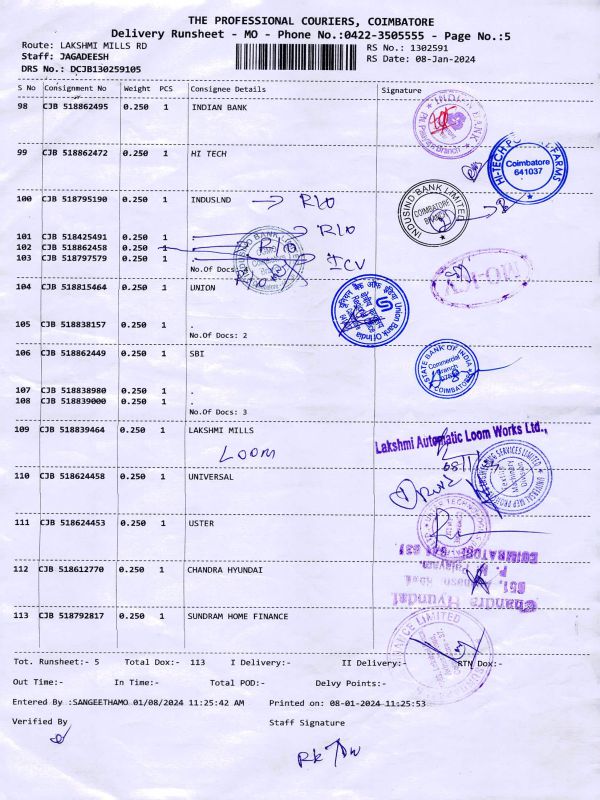 THE PROFESSIONAL COURIERS, COIMBATORE
Delivery Runsheet - MO - Phone No.:0422-3505555 - Page No.:5
Route: LAKSHMI MILLS RD
RS No.: 1302591
Staff: JAGADEESH
RS Date: 08-Jan-2024
DRS No.: DCJB130259105
S No Consignment No Weight PCS Consignee Details Signature
98 CJB 518862495 0.250 1 INDIAN BANK
INDIAN BANK
99 CJB 518862472 0.250 1 HI TECH
Coimbatore
641037
100 CJB 518795190 0.250 1 INDUSLND R/O
INDUSIND BANK LIMITED
COIMBATORE
BRANCH
101 CJB 518425491 0.250 1 . R/O
102 CJB 518862458 0.250 1 . R/O
103 CJB 518797579 0.250 1 . ICV
No.Of Docs: 4
104 CJB 518815464 0.250 1 UNION
Union Bank Of India
105 CJB 518838157 0.250 1 .
No.Of Docs: 2
106 CJB 518862449 0.250 1 SBI
STATE BANK OF INDIA
Commercial
Branch
COIMBATORE
107 CJB 518838980 0.250 1 .
108 CJB 518839000 0.250 1 .
No.Of Docs: 3
109 CJB 518839464 0.250 1 LAKSHMI MILLS
Lakshmi Automatic Loom Works Ltd.,
LOOM
110 CJB 518624458 0.250 1 UNIVERSAL
111 CJB 518624453 0.250 1 USTER
112 CJB 518612770 0.250 1 CHANDRA HYUNDAI
Chandra Hyundai
113 CJB 518792817 0.250 1 SUNDRAM HOME FINANCE
Tot. Runsheet:- 5 Total Dox:- 113 I Delivery:- II Delivery:- RTN Dox:-
Out Time:- In Time:- Total POD:- Delvy Points:-
Entered By :SANGEETHAMO 01/08/2024 11:25:42 AM Printed on: 08-01-2024 11:25:53
Verified By Staff Signature